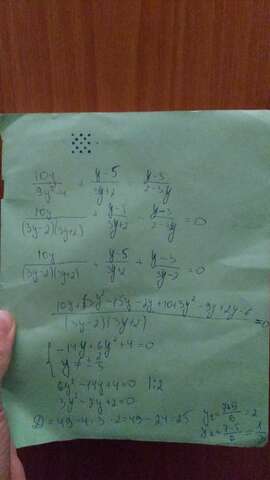 10y/(9y²-4) + (y-5)/(3y+2) (y-3)/(2-3y)
10y/((3y-2)(3y+2)) + (y-5)/(3y+2) - (y-3)/(2-3y) = 0
10y/((3y-2)(3y+2)) + (y-5)/(3y+2) + (y-3)/(3y-2) = 0
(10y+3y²-15y-2y+10+3y²-9y+2y-6)/((3y-2)(3y+2)) = 0
{ -14y+6y²+4=0
{ y≠±2/3
6y²-14y+4=0 |:2
3y²-7y+2=0
D=49-4·3·2=49-24=25 y₁=(7+5)/6=2
y₂=(7-5)/6=1/3